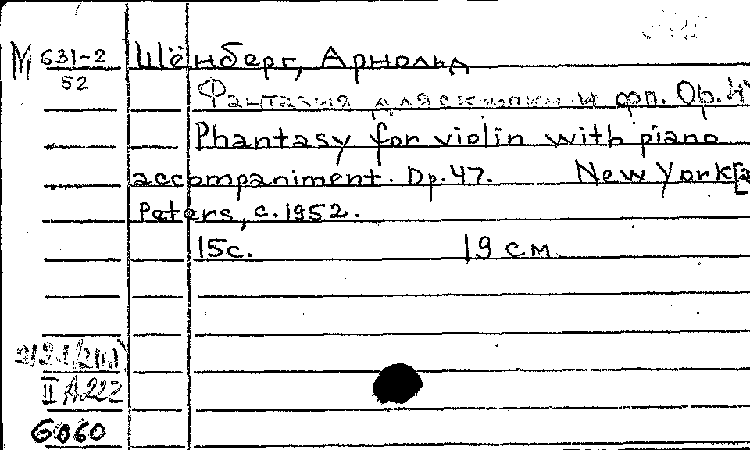 М 631-2
52
Шёнберг, Арнольд
Фантазия для скрипки и фп. Op. 4
Phantasy for violin with piano
accompaniment. Op. 47. New York [a
Peters, c. 1952.
15с. 19 см.
II A 222
6060